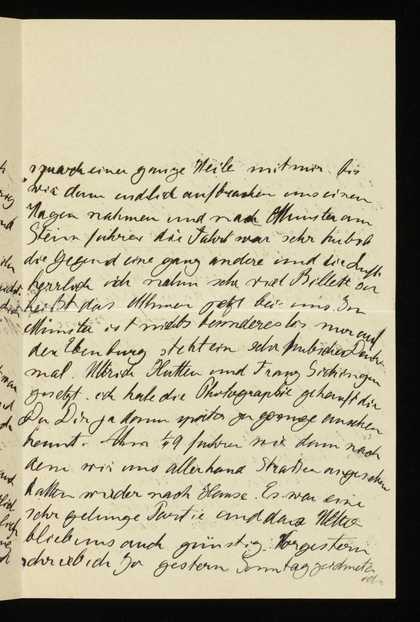 sprach einer ganze Weile mit mir. Bis
wir dann endlich aufbrachen uns einen
Wagen nahmen und nach Münster am
Stein fuhren die Fahrt war sehr hübsch
die Gegend eine ganz andere und die Luft
herrlich ich nahm sehr viel
heißt das Athmen jetzt bei uns. In
Münster ist nichts besonderes los nur auf
der Ebenburg steht ein sehr hübsches Denk
mal. Ullrich Hutten und Franz Sickingen
gesetzt. ich habe die Photographie gekauft die
Du Dir ja dann später ja genüge ansehen
kannst. Um ½9 fuhren wir dann nach
dem wir uns allerhand Straßen angesehen
hatten wieder nach Hause. Es war eine
sehr gelunge Partie und das Wetter
blieb uns auch günstig. Vorgestern
schrieb ich Ja gestern Sonntag zeichnete
ich